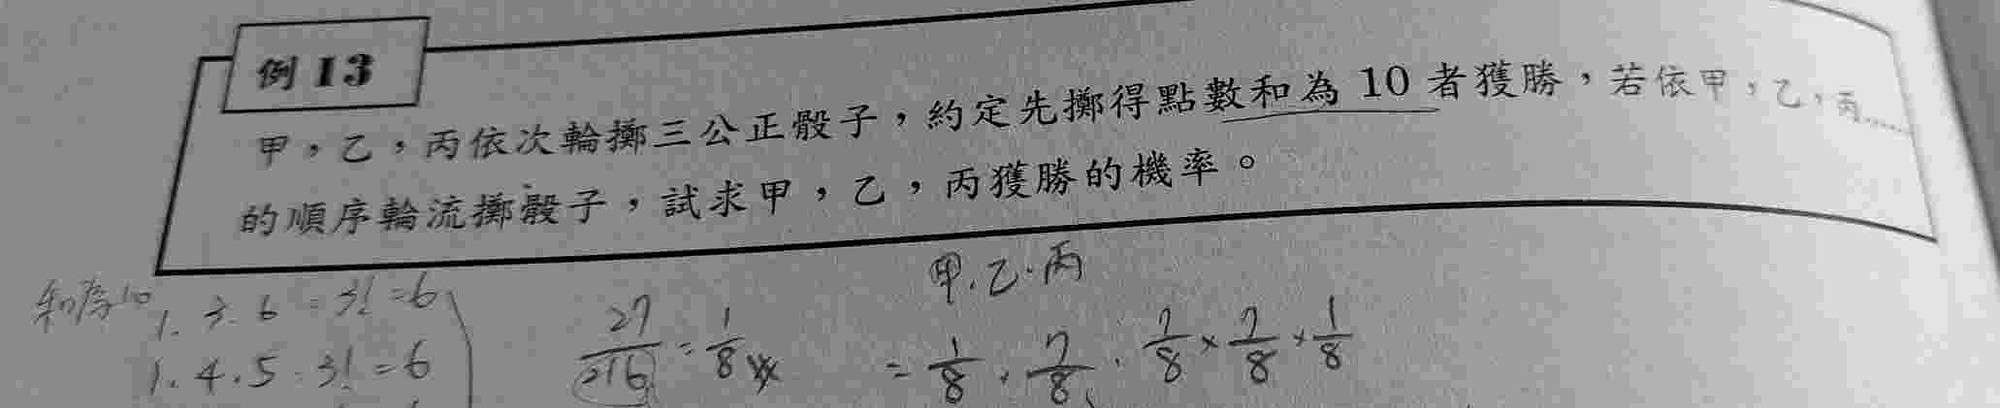 例 13
甲，乙，丙依次輪擲三公正骰子，約定先擲得點數和為 10 者獲勝，若依甲，乙，丙……
的順序輪流擲骰子，試求甲，乙，丙獲勝的機率。
甲.乙.丙
和為10
1. 3. 6 = 3! = 6
1. 4. 5 : 3! = 6
27/216 = 1/8
= 1/8 . 7/8 . 7/8 × 7/8 × 1/8